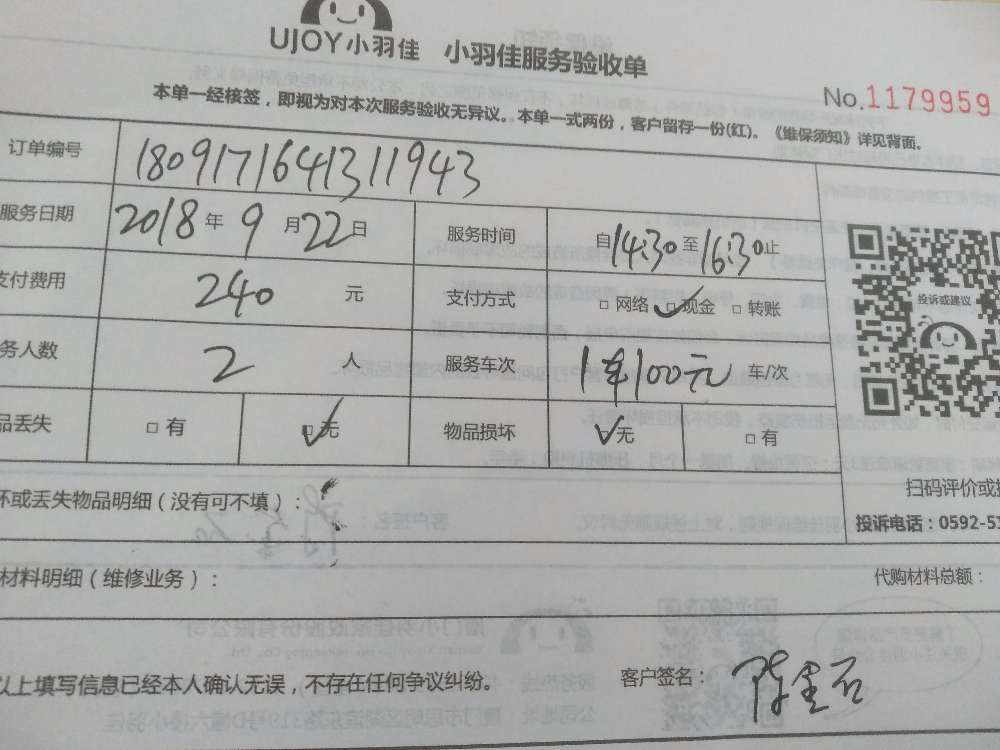 UJOY小羽佳 小羽佳服务验收单
No.1179959
本单一经核签，即视为对本次服务验收无异议。本单一式两份，客户留存一份(红)。《维保须知》详见背面。
订单编号 180917164131 1943
服务日期 2018年9月22日 服务时间 自14:30至16:30止
支付费用 240 元 支付方式 □网络 ☑现金 □转账
务人数 2 人 服务车次 1车100元 车/次
品丢失 □有 ☑无 物品损坏 ☑无 □有
投诉或建议
坏或丢失物品明细（没有可不填）：
扫码评价或
投诉电话：0592-5
材料明细（维修业务）： 代购材料总额：
以上填写信息已经本人确认无误，不存在任何争议纠纷。 客户签名：